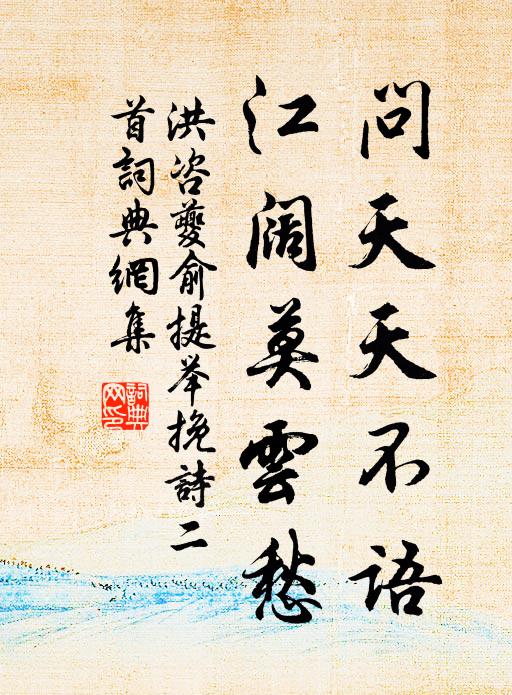 問天天不語
江阔莫雲愁
洪咨夔俞提举挽詩二
首詞典網集
詞典
网印